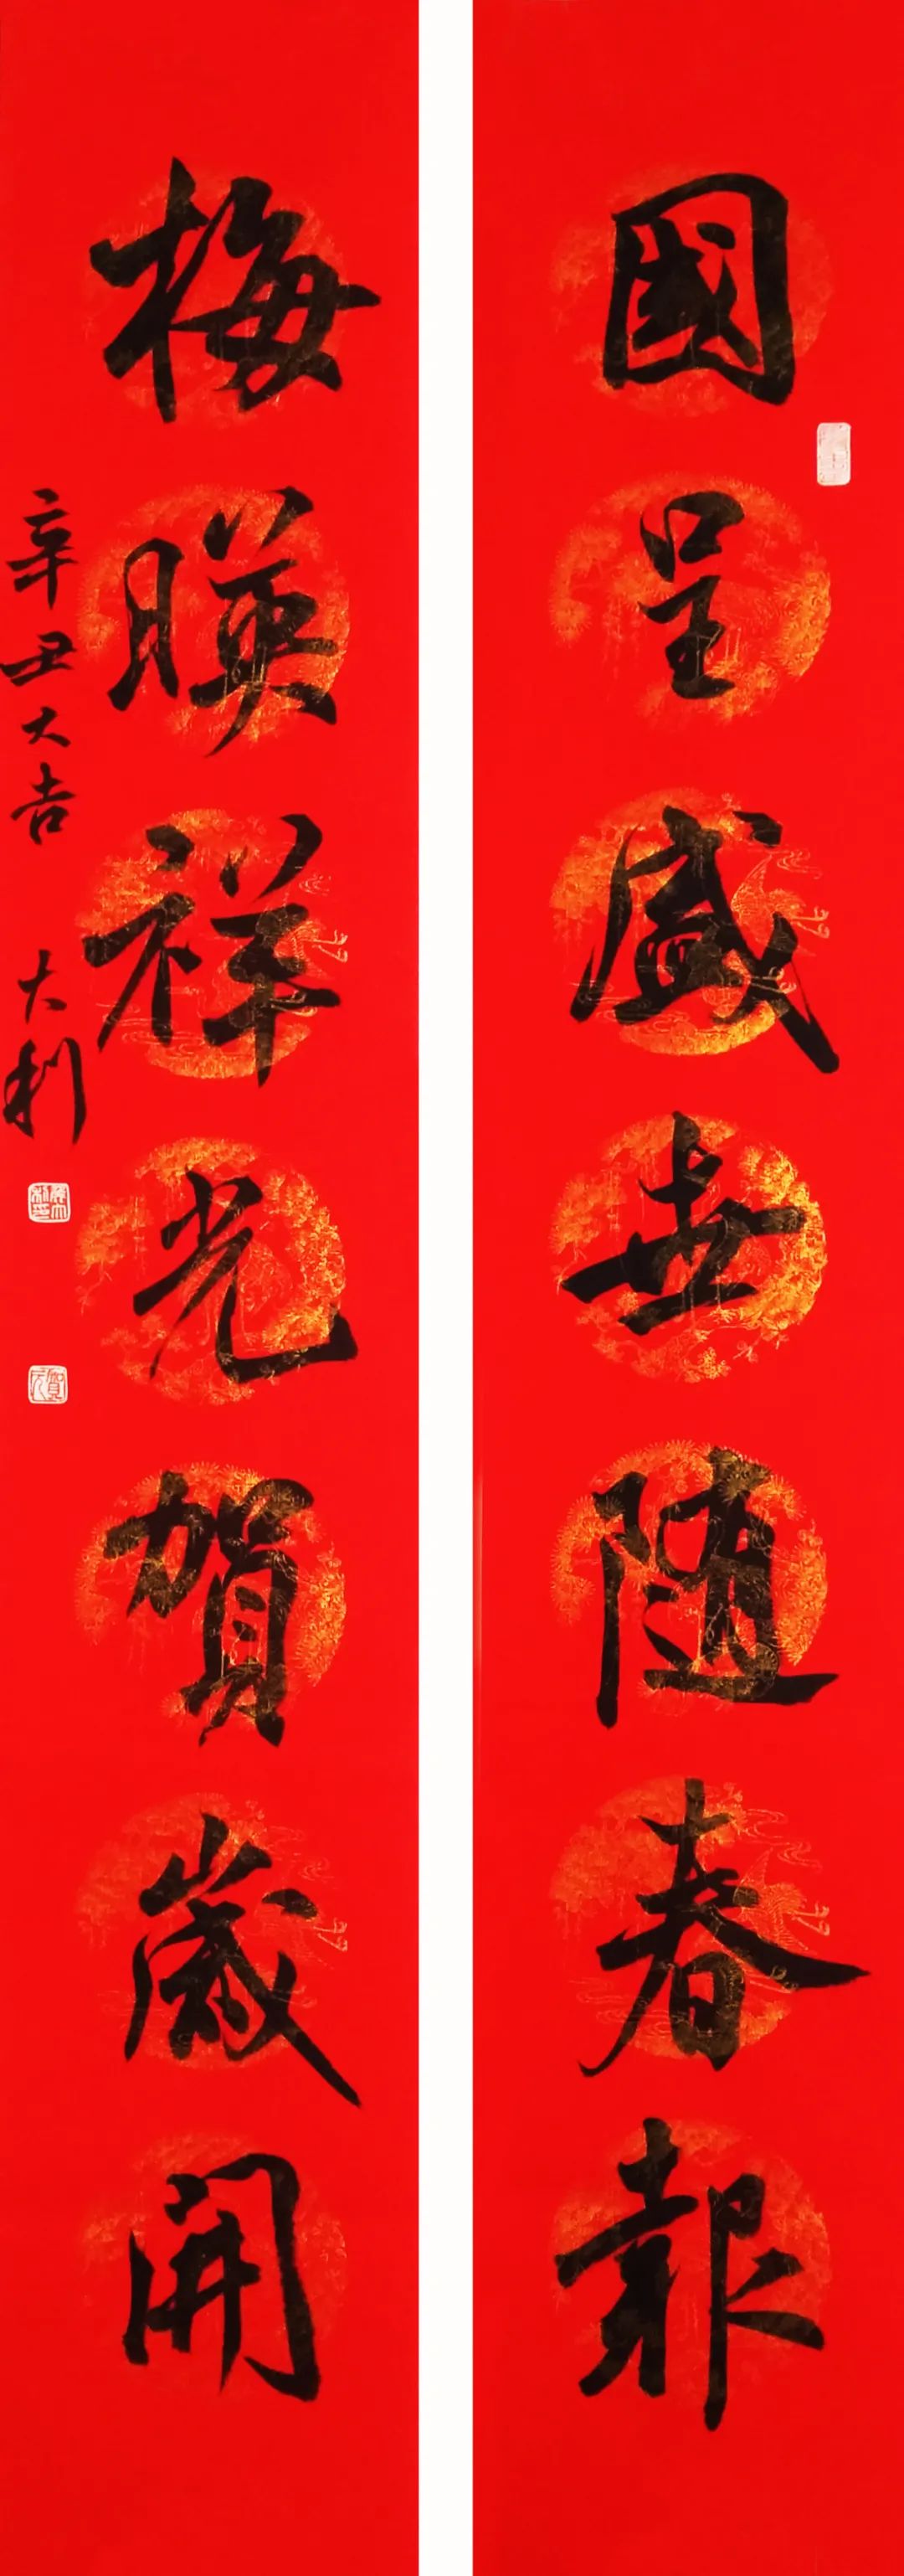 國呈盛世随春報
梅暎祥光賀歲開
辛丑大吉 大利